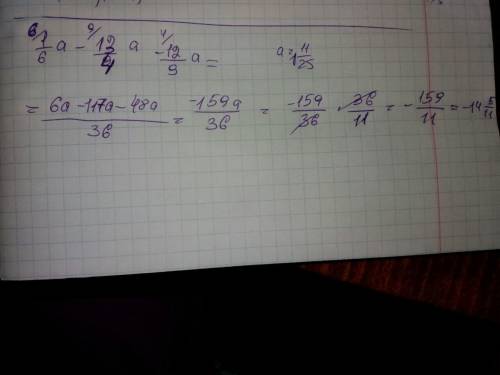 6/ 1/6 a - 9/ 13/4 a 4/ -12/9 a = a = 1 11/25
= (6a - 117a - 48a)/36 = -159a/36 = -159/36 · 36/11 = - 159/11 = -14 5/11